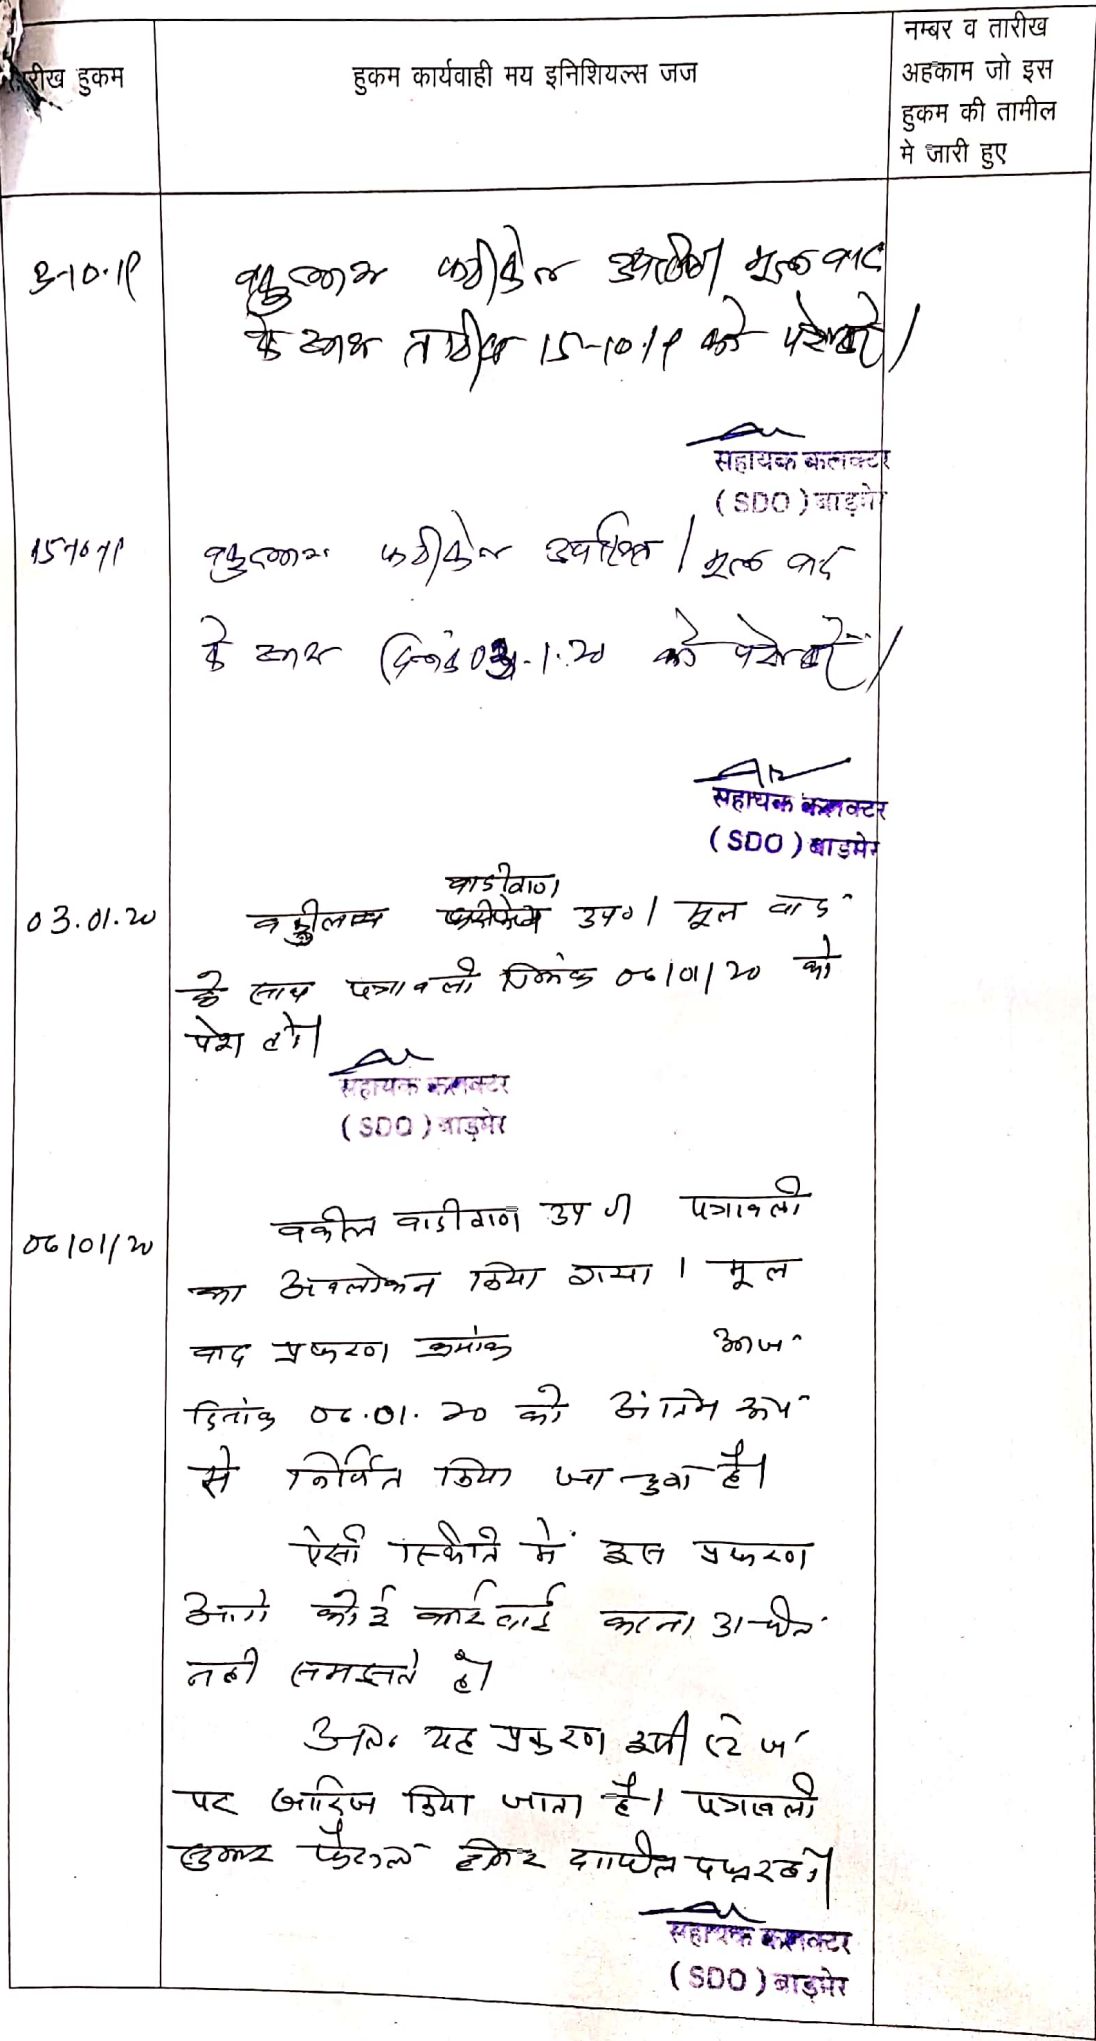 रीख हुकम
हुकम कार्यवाही मय इनिशियल्स जज
नम्बर व तारीख
अहकाम जो इस
हुकम की तामील
मे जारी हुए
3-10-19
वकुलाय फरीकेन उपस्थित। मूल वाद
के साथ तारीख 15-10-19 को पेश हो।
सहायक कलक्टर
(SDO) बाड़मेर
15-10-19
वकुलाय फरीकेन उपस्थित। मूल वाद
के साथ दिनांक 03-1-20 को पेश हो।
सहायक कलक्टर
(SDO) बाड़मेर
03.01.20
वादीगण
उप०। मूल वाद
के साथ पत्रावली दिनांक 06/01/20 को
पेश हो।
सहायक कलक्टर
(SDO) बाड़मेर
06/01/20
वकील वादीगण उप०। पत्रावली
का अवलोकन किया गया। मूल
वाद प्रकरण क्रमांक आज
दिनांक 06.01.20 को अंतिम रूप
से निर्णित किया जा चुका है।
ऐसी स्थिति में इस प्रकरण
आगे कोई कार्रवाई करना उचित
नही समझते है।
अतः यह प्रकरण इसी स्टेज
पर खारिज किया जाता है। पत्रावली
शुमार फैसल होकर दाखिल दफ्तर हो।
सहायक कलक्टर
(SDO) बाड़मेर